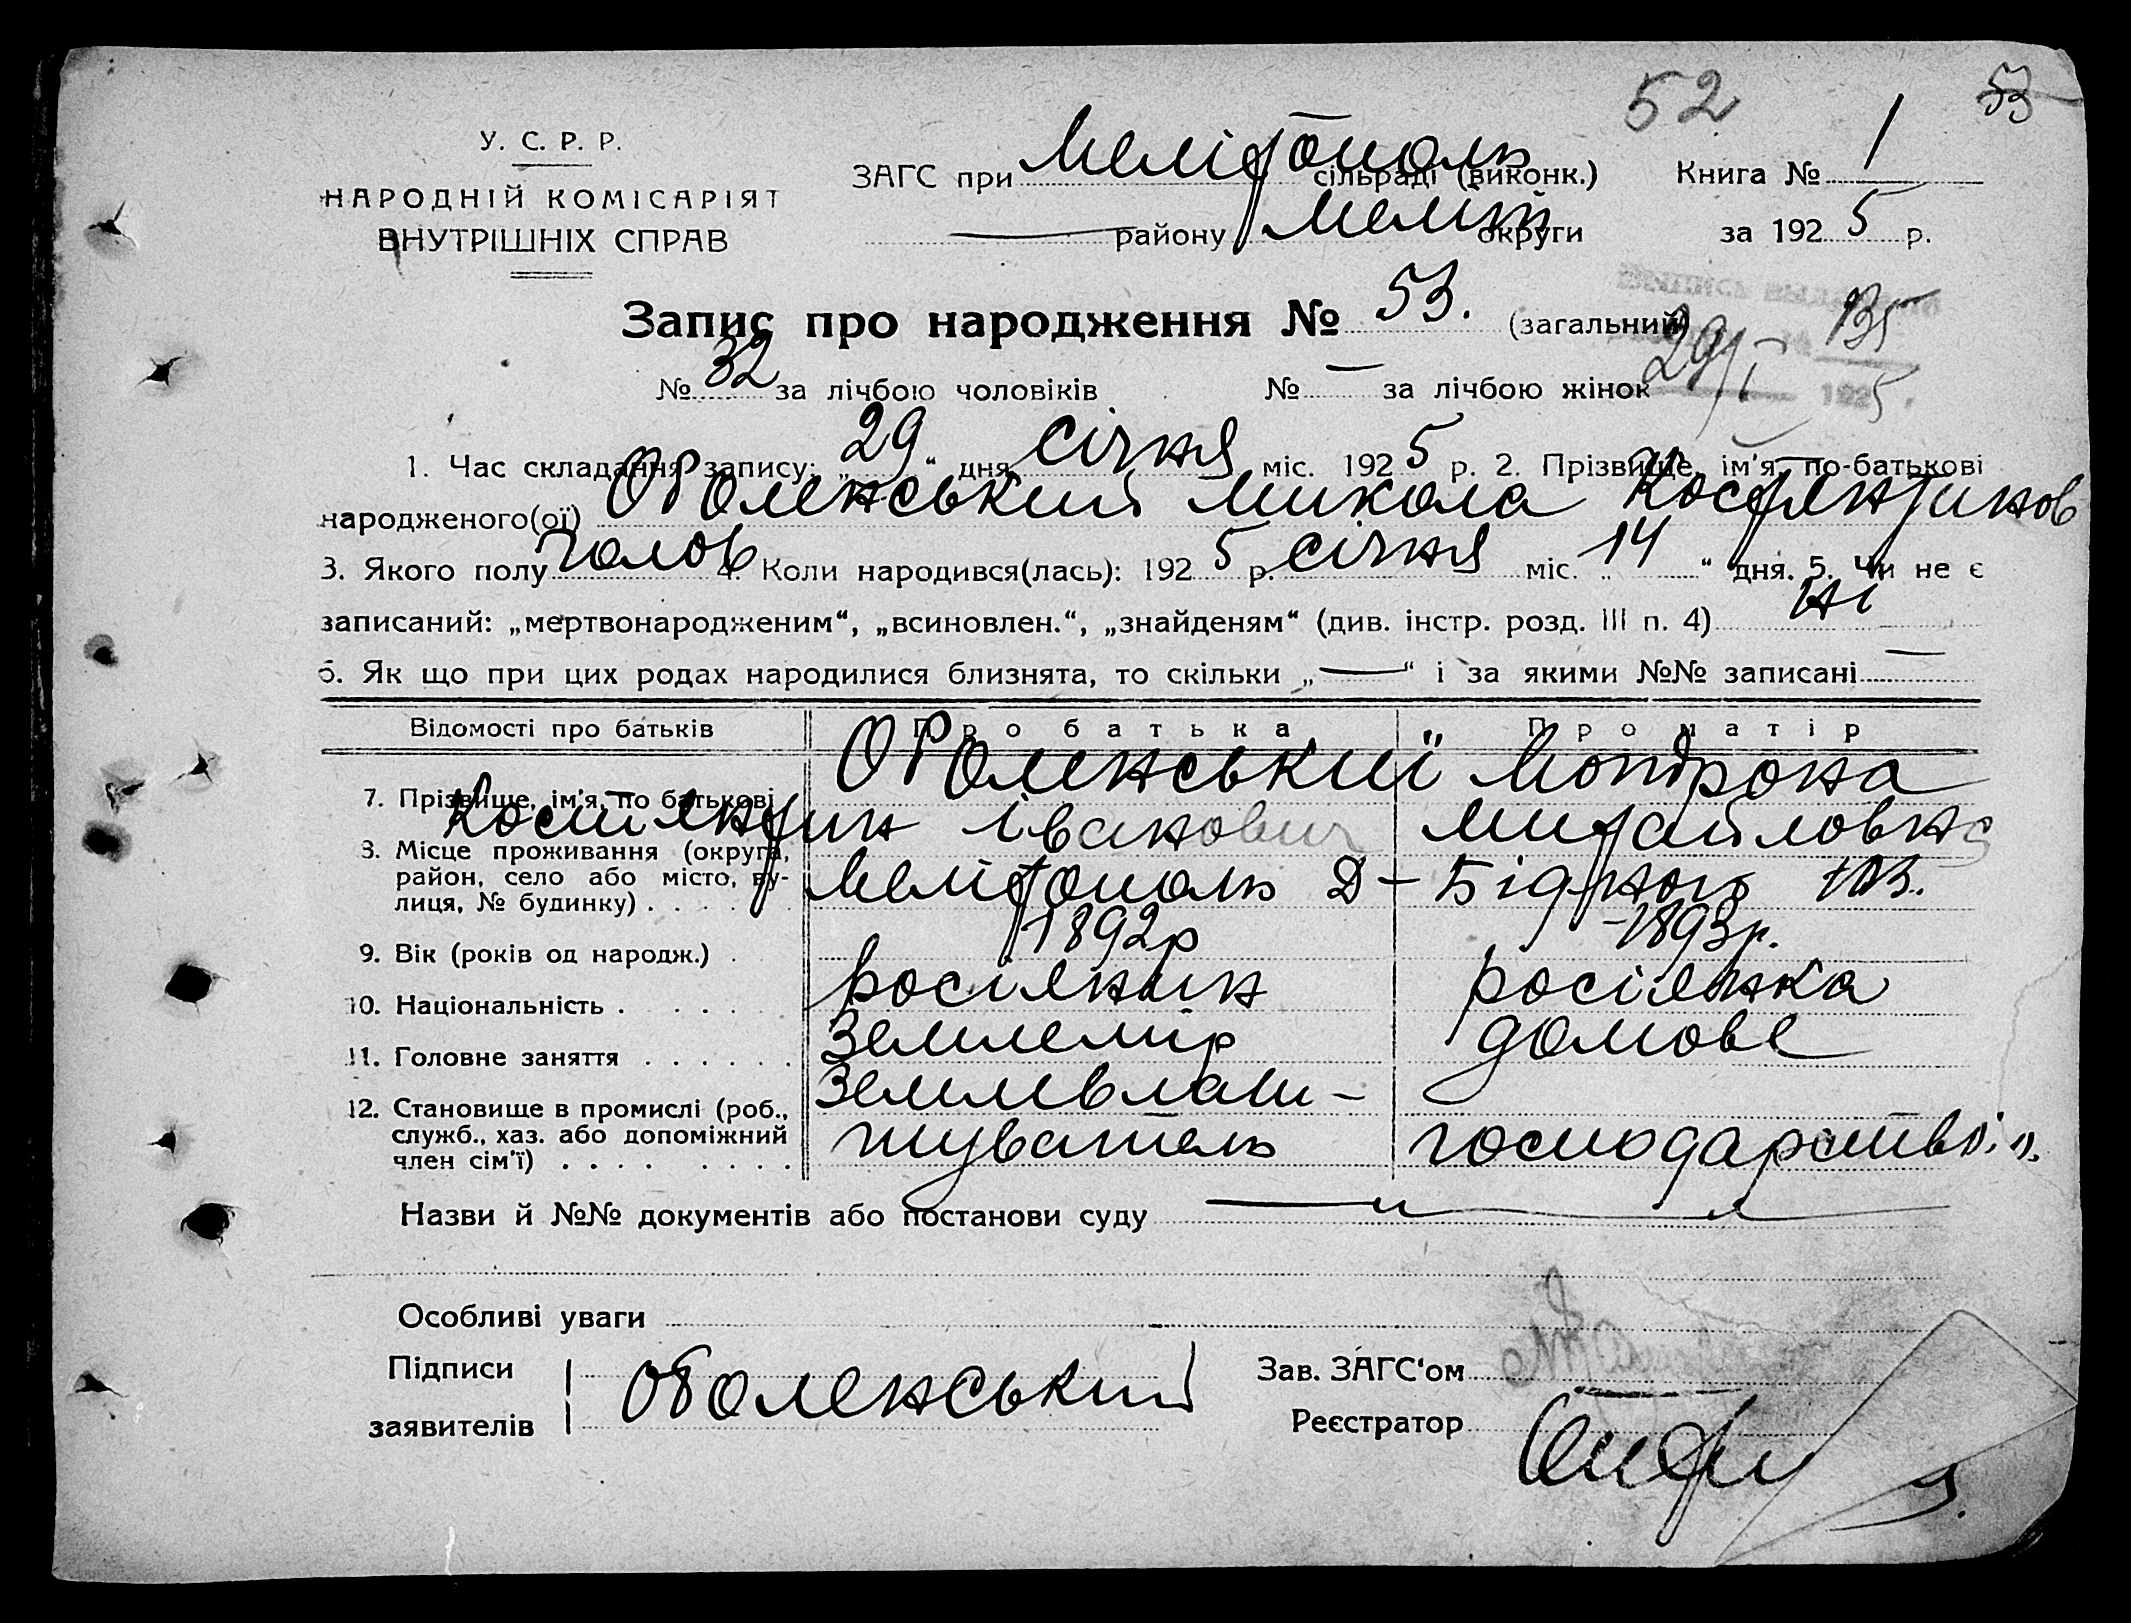 52 53
У. С. Р. Р.
НАРОДНІЙ КОМІСАРІЯТ
ВНУТРІШНІХ СПРАВ
ЗАГС при Мелітополь сільраді (виконк.) Книга № 1
району Меліт округи за 1925 р.
Запис про народження № 53. (загальний)
135
29/I 1925
№ 32 за лічбою чоловіків № — за лічбою жінок
1. Час складання запису: „29“ дня січня міс. 1925 р. 2. Прізвище, ім'я, по-батькові
народженого(ої) Оболенський Микола Костянтинов
3. Якого полу чолов 4. Коли народився(лась): 1925 р. січня міс. „14“ дня. 5. Чи не є
записаний: „мертвонародженим“, „всиновлен.“, „знайденям“ (див. інстр. розд. III п. 4) ні
6. Як що при цих родах народилися близнята, то скільки „—“ і за якими №№ записані —
Відомості про батьків Про батька Про матір
7. Прізвище, ім'я, по батькові Оболенський Мотрона
Костянтин Іванович Михайловна
8. Місце проживання (округа,
район, село або місто, ву-
лиця, № будинку) Мелітополь Д-Бідного 103.
9. Вік (років од народж.) 1892р 1893р.
10. Національність росіянин росіянка
11. Головне заняття Землемір домове
12. Становище в промислі (роб.,
служб., хаз. або допоміжний
член сім'ї) Землевлаш-
туватель господарство
Назви й №№ документів або постанови суду
Особливі уваги
Підписи
заявителів Оболенський
Зав. ЗАГС'ом
Реєстратор